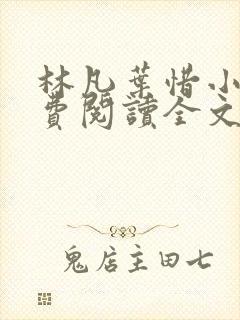 林凡葉惜小
費閱讀全文
鬼店主田七